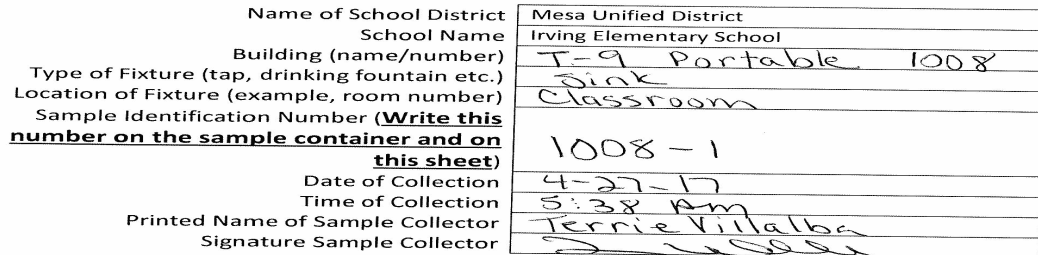 Name of School District Mesa Unified District
School Name Irving Elementary School
Building (name/number) T-9 Portable 1008
Type of Fixture (tap, drinking fountain etc.) Sink
Location of Fixture (example, room number) Classroom
Sample Identification Number (Write this
number on the sample container and on
this sheet) 1008-1
Date of Collection 4-27-17
Time of Collection 5:38 Am
Printed Name of Sample Collector Terrie Villalba
Signature Sample Collector